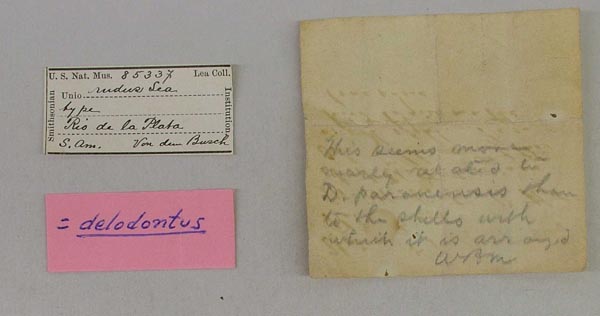 U. S. Nat. Mus. 85337 Lea Coll.
Smithsonian
Unio rudus Lea
type
Rio de la Plata
S. Am. Von dem Busch
Institution
= delodontus
This seems more
nearly related to
D. paranensis than
to the shells with
which it is arranged